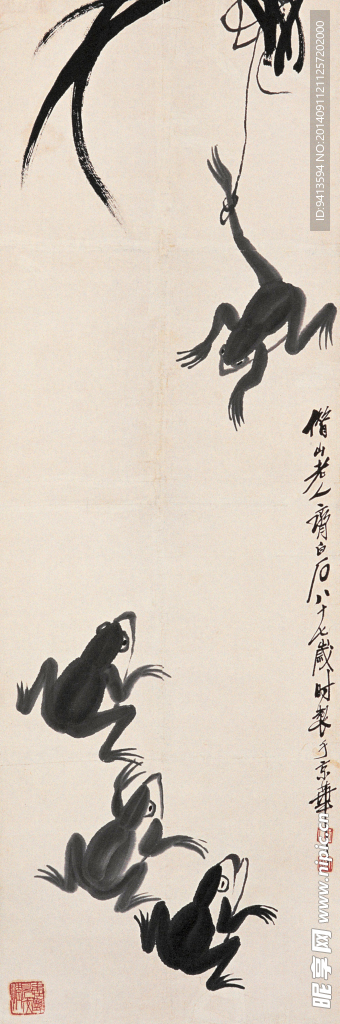 ID:9413594 NO:20140911211257202000
借山老人齊白石八十七歲時製于京華
昵享网 www.nipic.cn